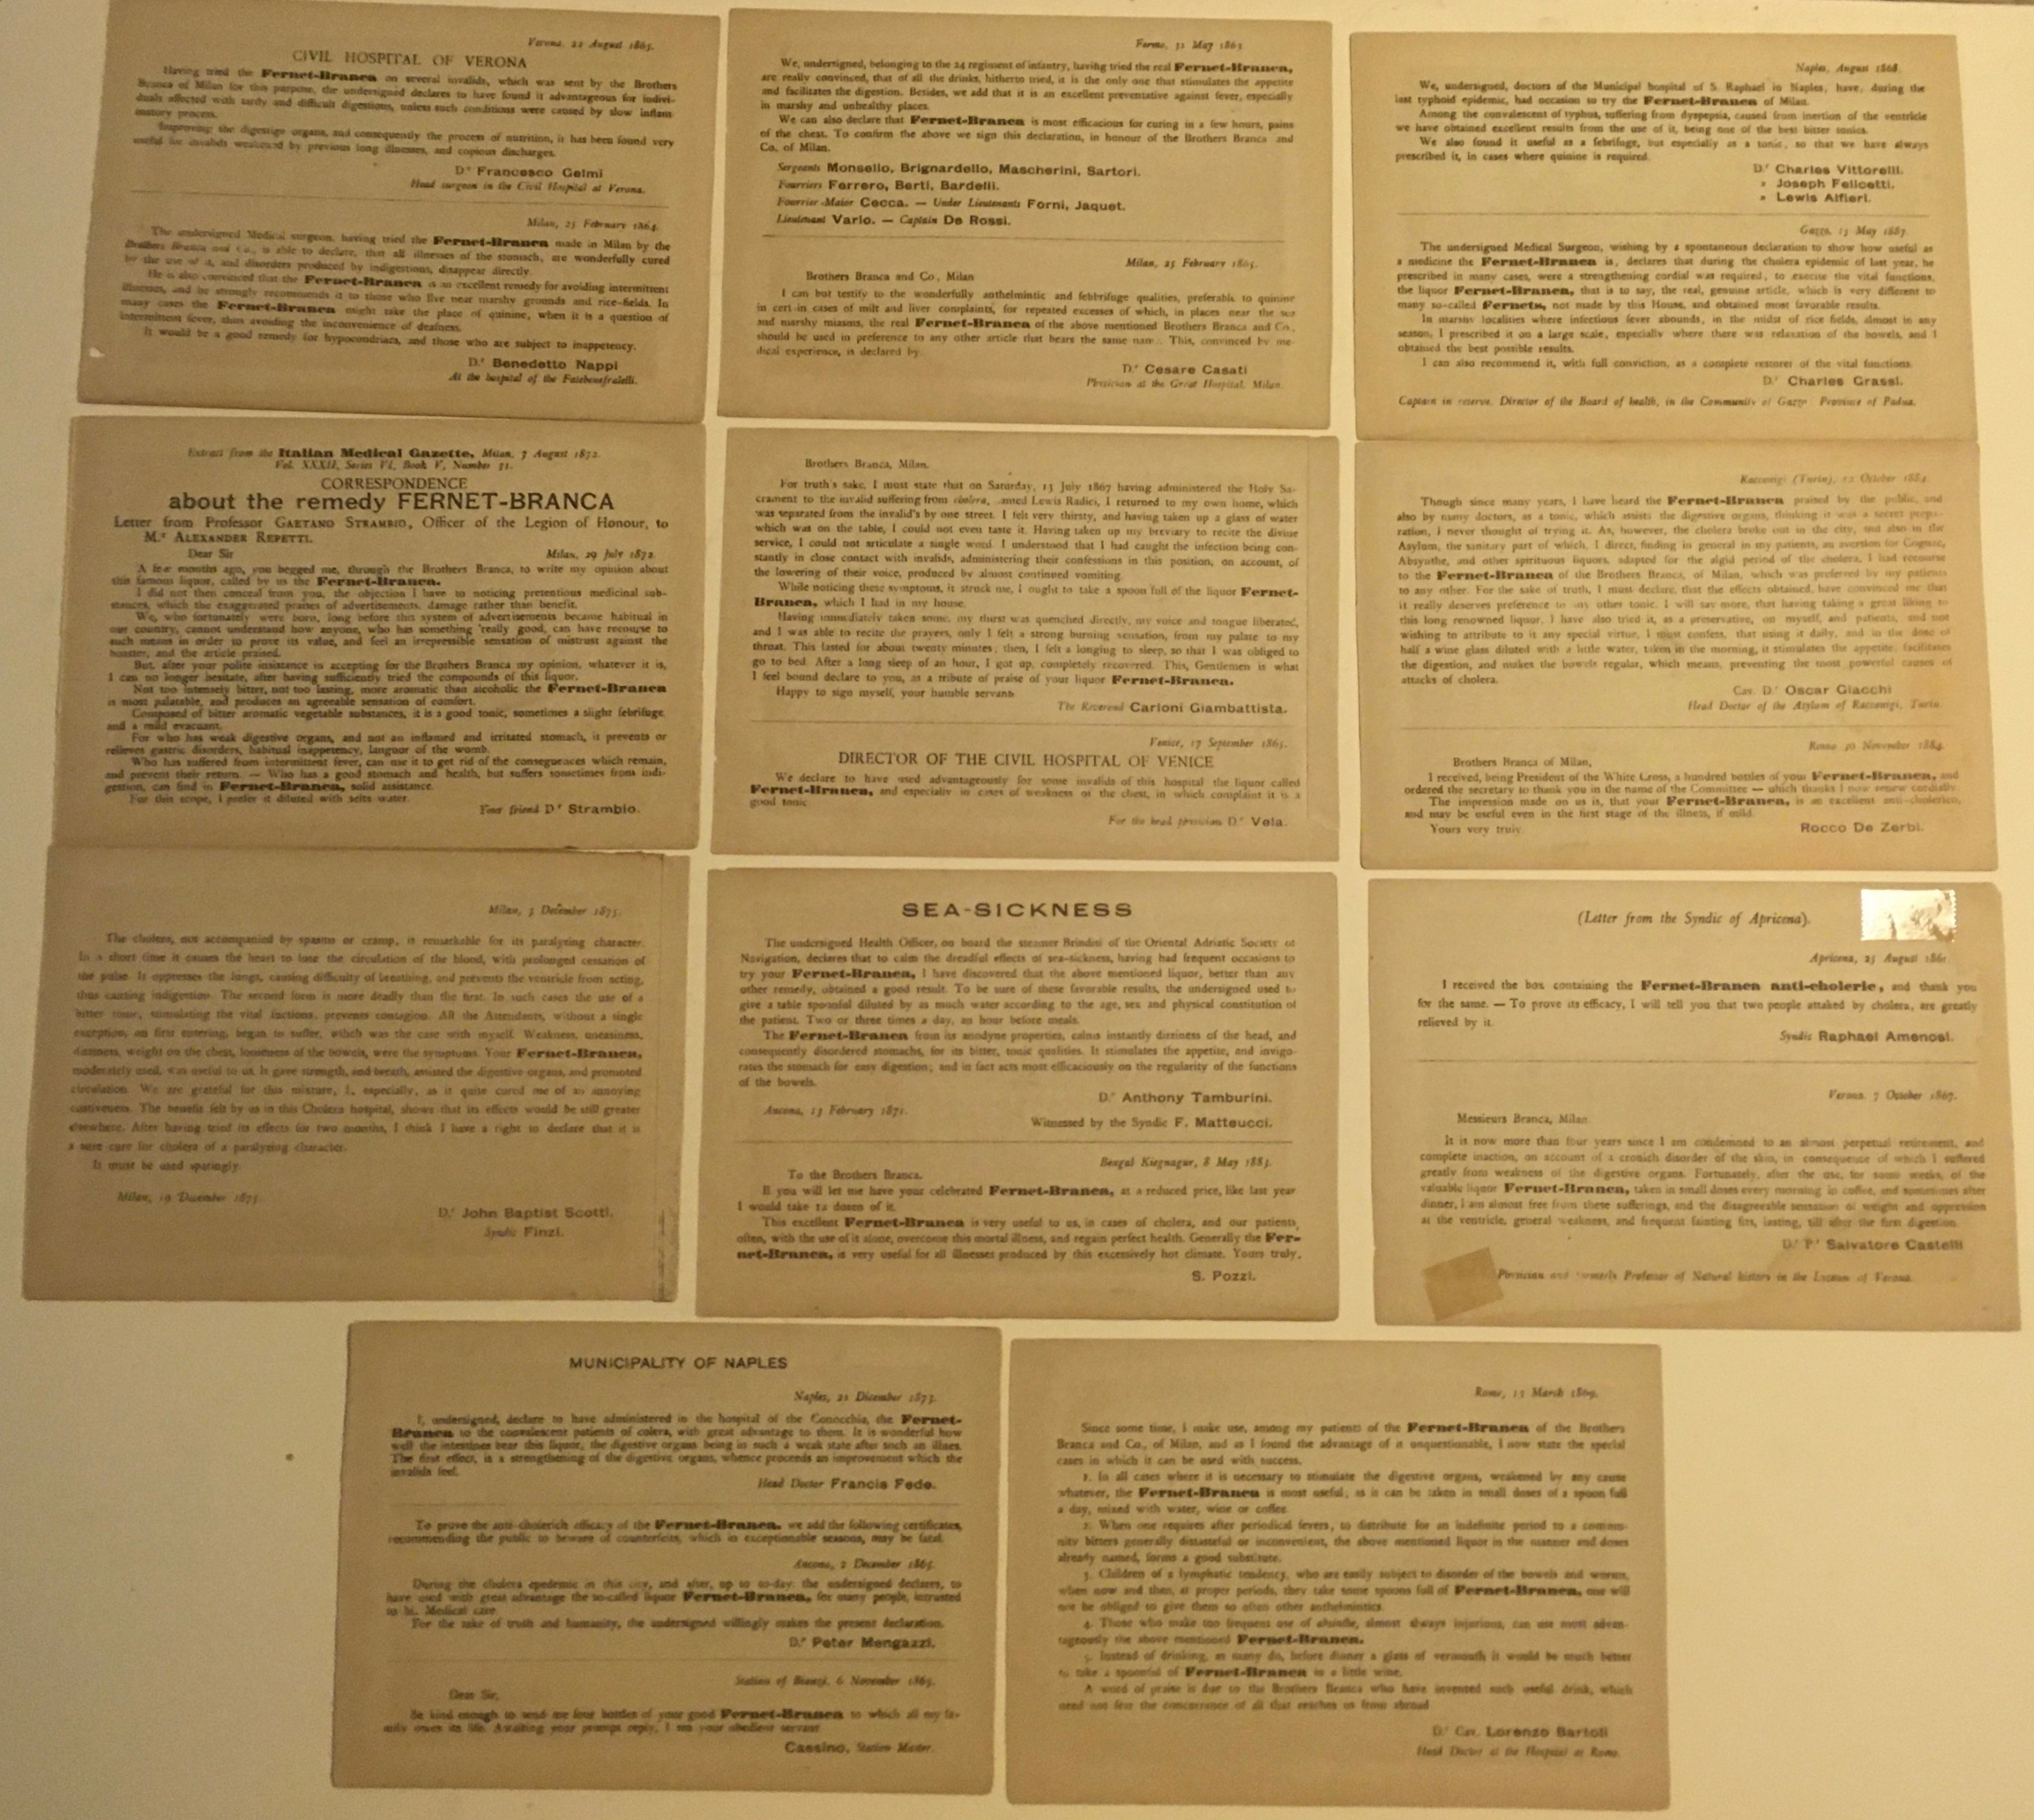 Verona, 22 August 1865.
CIVIL HOSPITAL OF VERONA
Having tried the Fernet-Branca on several invalids, which was sent by the Brothers
Branca of Milan for this purpose, the undersigned declares to have found it advantageous for indivi-
duals affected with tardy and difficult digestions, unless such conditions were caused by slow inflam-
matory process.
Improving the digestige organs, and consequently the process of nutrition, it has been found very
useful for invalids weakened by previous long illnesses, and copious discharges.
Dr Francesco Gelmi
Head surgeon in the Civil Hospital at Verona.
Milan, 25 February 1864.
The undersigned Medical surgeon, having tried the Fernet-Branca made in Milan by the
Brothers Branca and Co., is able to declare, that all illnesses of the stomach, are wonderfully cured
by the use of it, and disorders produced by indigestions, disappear directly.
He is also convinced that the Fernet-Branca is an excellent remedy for avoiding intermittent
illnesses, and he strongly recommends it to those who live near marshy grounds and rice-fields. In
many cases the Fernet-Branca might take the place of quinine, when it is a question of
intermittent fever, thus avoiding the inconvenience of deafness.
It would be a good remedy for hypocondriacs, and those who are subject to inappetency.
Dr Benedetto Nappi
At the hospital of the Fatebenefratelli.
Fermo, 31 May 1863.
We, undersigned, belonging to the 24 regiment of infantry, having tried the real Fernet-Branca,
are really convinced, that of all the drinks, hitherto tried, it is the only one that stimulates the appetite
and facilitates the digestion. Besides, we add that it is an excellent preventative against fever, especially
in marshy and unhealthy places.
We can also declare that Fernet-Branca is most efficacious for curing in a few hours, pains
of the chest. To confirm the above we sign this declaration, in honour of the Brothers Branca and
Co. of Milan.
Sergeants Monsello, Brignardello, Mascherini, Sartori.
Fourriers Ferrero, Berti, Bardelli.
Fourrier-Maior Cecca. — Under Lieutenants Forni, Jaquet.
Lieutenant Vario. — Captain De Rossi.
Milan, 25 February 1865.
Brothers Branca and Co, Milan
I can but testify to the wonderfully anthelmintic and febbrifuge qualities, preferable to quinine
in cert in cases of milt and liver complaints, for repeated excesses of which, in places near the sea
and marshy miasms, the real Fernet-Branca of the above mentioned Brothers Branca and Co.,
should be used in preference to any other article that bears the same nam. This, convinced by me-
dical experience, is declared by.
Dr Cesare Casati
Physician at the Great Hospital. Milan.
Naples, August 1868.
We, undersigned, doctors of the Municipal hospital of S. Raphael in Naples, have, during the
last typhoid epidemic, had occasion to try the Fernet-Branca of Milan.
Among the convalescent of typhus, suffering from dyspepsia, caused from inertion of the ventricle
we have obtained excellent results from the use of it, being one of the best bitter tonics.
We also found it useful as a febrifuge, but especially as a tonic, so that we have always
prescribed it, in cases where quinine is required.
Dr Charles Vittorelli.
» Joseph Felicetti.
» Lewis Alfieri.
Gazzo, 15 May 1887.
The undersigned Medical Surgeon, wishing by a spontaneous declaration to show how useful as
a medicine the Fernet-Branca is, declares that during the cholera epidemic of last year, he
prescribed in many cases, were a strengthening cordial was required, to execite the vital functions,
the liquor Fernet-Branca, that is to say, the real, genuine article, which is very different to
many so-called Fernets, not made by this House, and obtained most favorable results.
In marshy localities where infectious fever abounds, in the midst of rice fields, almost in any
season, I prescribed it on a large scale, especially where there was relaxation of the bowels, and I
obtained the best possible results.
I can also recommend it, with full conviction, as a complete restorer of the vital functions.
Dr Charles Grassi.
Captain in reserve. Director of the Board of health, in the Community of Gazzo Province of Padua.
Extract from the Italian Medical Gazette, Milan, 7 August 1872.
Vol. XXXII, Series VI, Book V, Number 31.
CORRESPONDENCE
about the remedy FERNET-BRANCA
Letter from Professor GAETANO STRAMBIO, Officer of the Legion of Honour, to
M.r ALEXANDER REPETTI.
Dear Sir Milan, 29 July 1872.
A few months ago, you begged me, through the Brothers Branca, to write my opinion about
this famous liquor, called by us the Fernet-Branca.
I did not then conceal from you, the objection I have to noticing pretentious medicinal sub-
stances, which the exaggerated praises of advertisements, damage rather than benefit.
We, who fortunately were born, long before this system of advertisements became habitual in
our country, cannot understand how anyone, who has something 'really good, can have recourse to
such means in order to prove its value, and feel an irrepressible sensation of mistrust against the
boaster, and the article praised.
But, after your polite insistance in accepting for the Brothers Branca my opinion, whatever it is,
I can no longer hesitate, after having sufficiently tried the compounds of this liquor.
Not too intensely bitter, not too lasting, more aromatic than alcoholic the Fernet-Branca
is most palatable, and produces an agreeable sensation of comfort.
Composed of bitter aromatic vegetable substances, it is a good tonic, sometimes a slight febrifuge
and a mild evacuant.
For who has weak digestive organs, and not an inflamed and irritated stomach, it prevents or
relieves gastric disorders, habitual inappetency, languor of the womb.
Who has suffered from intermittent fever, can use it to get rid of the consequences which remain,
and prevent their return. — Who has a good stomach and health, but suffers sometimes from indi-
gestion, can find in Fernet-Branca, solid assistance.
For this scope, I prefer it diluted with selts water.
Your friend Dr Strambio.
Brothers Branca, Milan.
For truth's sake, I must state that on Saturday, 13 July 1867 having administered the Holy Sa-
crament to the invalid suffering from cholera, amed Lewis Radici, I returned to my own home, which
was separated from the invalid's by one street. I felt very thirsty, and having taken up a glass of water
which was on the table, I could not even taste it. Having taken up my breviary to recite the divine
service, I could not articulate a single word. I understood that I had caught the infection being con-
stantly in close contact with invalids, administering their confessions in this position, on account, of
the lowering of their voice, produced by almost continued vomiting.
While noticing these symptoms, it struck me, I ought to take a spoon full of the liquor Fernet-
Branca, which I had in my house.
Having immediately taken some, my thirst was quenched directly, my voice and tongue liberated,
and I was able to recite the prayers, only I felt a strong burning sensation, from my palate to my
throat. This lasted for about twenty minutes, then, I felt a longing to sleep, so that I was obliged to
go to bed. After a long sleep of an hour, I got up, completely recovered. This, Gentlemen is what
I feel bound declare to you, as a tribute of praise of your liquor Fernet-Branca.
Happy to sign myself, your humble servant
The Reverend Carloni Giambattista.
Venice, 17 September 1865.
DIRECTOR OF THE CIVIL HOSPITAL OF VENICE
We declare to have used advantageously for some invalids of this hospital the liquor called
Fernet-Branca, and especially in cases of weakness of the chest, in which complaint it is a
good tonic.
For the head physician Dr Vela.
Racconigi (Turin), 12 October 1884.
Though since many years, I have heard the Fernet-Branca praised by the public, and
also by many doctors, as a tonic, which assists the digestive organs, thinking it was a secret prepa-
ration, I never thought of trying it. As, however, the cholera broke out in the city, and also in the
Asylum, the sanitary part of which, I direct, finding in general in my patients, an avertion for Cognac,
Absynthe, and other spirituous liquors, adapted for the algid period of the cholera, I had recourse
to the Fernet-Branca of the Brothers Branca, of Milan, which was preferred by my patients
to any other. For the sake of truth, I must declare, that the effects obtained, have convinced me that
it really deserves preference to any other tonic. I will say more, that having taking a great liking to
this long renowned liquor. I have also tried it, as a preservative, on myself, and patients, and not
wishing to attribute to it any special virtue, I must confess, that using it daily, and in the dose of
half a wine glass diluted with a little water, taken in the morning, it stimulates the appetite, facilitates
the digestion, and makes the bowels regular, which means, preventing the most powerful causes of
attacks of cholera.
Cav. Dr Oscar Giacchi
Head Doctor of the Asylum of Racconigi, Turin.
Rome 30 November 1884.
Brothers Branca of Milan,
I received, being President of the White Cross, a hundred bottles of your Fernet-Branca, and
ordered the secretary to thank you in the name of the Committee — which thanks I now renew cordially.
The impression made on us is, that your Fernet-Branca, is an excellent anti-cholerico,
and may be useful even in the first stage of the illness, if mild.
Yours very truly. Rocco De Zerbi.
Milan, 3 December 1875.
The cholera, not accompanied by spasms or cramp, is remarkable for its paralyzing character.
In a short time it causes the heart to lose the circulation of the blood, with prolonged cessation of
the pulse. It oppresses the lungs, causing difficulty of breathing, and prevents the ventricle from acting,
thus causing indigestion. The second form is more deadly than the first. In such cases the use of a
bitter tonic, stimulating the vital functions, prevents contagion. All the Attendants, without a single
exception, on first entering, began to suffer, which was the case with myself. Weakness, uneasiness,
dizziness, weight on the chest, looseness of the bowels, were the symptoms. Your Fernet-Branca,
moderately used, was useful to us. It gave strength, and breath, assisted the digestive organs, and promoted
circulation. We are grateful for this mixture, I, especially, as it quite cured me of an annoying
costiveness. The benefit felt by us in this Cholera hospital, shows that its effects would be still greater
elsewhere. After having tried its effects for two months, I think I have a right to declare that it is
a sure cure for cholera of a paralyzing character.
It must be used sparingly.
Milan, 19 December 1875.
Dr John Baptist Scotti.
Syndic Finzi.
SEA-SICKNESS
The undersigned Health Officer, on board the steamer Brindisi of the Oriental Adriatic Society of
Navigation, declares that to calm the dreadful effects of sea-sickness, having had frequent occasions to
try your Fernet-Branca, I have discovered that the above mentioned liquor, better than any
other remedy, obtained a good result. To be sure of these favorable results, the undersigned used to
give a table spoonful diluted by as much water according to the age, sex and physical constitution of
the patient. Two or three times a day, an hour before meals.
The Fernet-Branca from its anodyne properties, calms instantly dizziness of the head, and
consequently disordered stomachs, for its bitter, tonic qualities. It stimulates the appetite, and invigo-
rates the stomach for easy digestion, and in fact acts most efficaciously on the regularity of the functions
of the bowels.
Dr Anthony Tamburini.
Ancona, 13 February 1871.
Witnessed by the Syndic F. Matteucci.
Bengal Kisgnagur, 8 May 1883.
To the Brothers Branca.
If you will let me have your celebrated Fernet-Branca, at a reduced price, like last year
I would take 12 dozen of it.
This excellent Fernet-Branca is very useful to us, in cases of cholera, and our patients,
often, with the use of it alone, overcome this mortal illness, and regain perfect health. Generally the Fer-
net-Branca, is very useful for all illnesses produced by this excessively hot climate. Yours truly,
S. Pozzi.
(Letter from the Syndic of Apricena).
Apricena, 25 August
I received the box containing the Fernet-Branca anti-choleric, and thank you
for the same. — To prove its efficacy, I will tell you that two people attaked by cholera, are greatly
relieved by it.
Syndic Raphael Amenosi.
Verona. 7 October 1867.
Messieurs Branca, Milan.
It is now more than four years since I am condemned to an almost perpetual retirement, and
complete inaction, on account of a cronich disorder of the skin, in consequence of which I suffered
greatly from weakness of the digestive organs. Fortunately, after the use, for some weeks, of the
valuable liquor Fernet-Branca, taken in small doses every morning in coffee, and sometimes after
dinner, I am almost free from these sufferings, and the disagreeable sensation of weight and oppression
at the ventricle, general weakness, and frequent fainting fits, lasting, till after the first digestion.
Dr Pr Salvatore Castelli
Physician and formerly Professor of Natural history in the Lyceum of Verona.
MUNICIPALITY OF NAPLES
Naples, 21 Dicember 1873.
I, undersigned, declare to have administered in the hospital of the Conocchia, the Fernet-
Branca to the convalescent patients of colera, with great advantage to them. It is wonderful how
well the intestines bear this liquor, the digestive organs being in such a weak state after such an illnes.
The first effect, is a strengthening of the digestive organs, whence proceeds an improvement which the
invalids feel.
Head Doctor Francis Fede.
To prove the anti-cholerich efficacy of the Fernet-Branca, we add the following certificates,
recommending the public to beware of counterfeits, which in exceptionable seasons, may be fatal.
Ancona, 2 December 1865.
During the cholera epedemic in this city, and after, up to to-day. the undersigned declares, to
have used with great advantage the so-called liquor Fernet-Branca, for many people, intrusted
to his Medical care.
For the sake of truth and humanity, the undersigned willingly makes the present declaration.
Dr Peter Mengazzi.
Station of 6 November 1865.
Dear Sir,
Be kind enough to send me four bottles of your good Fernet-Branca to which all my fa-
mily owes its life. Awaiting your prompt reply, I am your obedient servant
Cassino, Station Master.
Rome, 13 March 1869.
Since some time, I make use, among my patients of the Fernet-Branca of the Brothers
Branca and Co., of Milan, and as I found the advantage of it unquestionable, I now state the special
cases in which it can be used with success.
1. In all cases where it is necessary to stimulate the digestive organs, weakened by any cause
whatever, the Fernet-Branca is most useful, as it can be taken in small doses of a spoon full
a day, mixed with water, wine or coffee.
2. When one requires after periodical fevers, to distribute for an indefinite period to a commu-
nity bitters generally distasteful or inconvenient, the above mentioned liquor in the manner and doses
already named, forms a good substitute.
3. Children of a lymphatic tendency, who are easily subject to disorder of the bowels and worms,
when now and then, at proper periods, they take some spoons full of Fernet-Branca, one will
not be obliged to give them so often other anthelmintics.
4. Those who make too frequent use of absinthe, almost always injurious, can use most advan-
tageously the above mentioned Fernet-Branca.
5. Instead of drinking, as many do, before dinner a glass of vermouth it would be much better
to take a spoonful of Fernet-Branca in a little wine.
A word of praise is due to the Brothers Branca who have invented such useful drink, which
need not fear the concurrence of all that reaches us from abroad.
Dr Cav. Lorenzo Bartoli
Head Doctor at the Hospital at Rome.